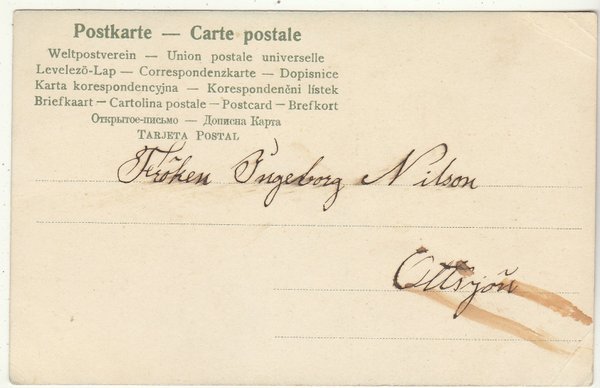 Postkarte — Carte postale
Weltpostverein — Union postale universelle
Levelező-Lap — Correspondenzkarte — Dopisnice
Karta korespondencyjna — Korespondenčni lístek
Briefkaart — Cartolina postale — Postcard — Brefkort
Открытое-письмо — Дописна Карта
TARJETA POSTAL
Fröken Ingeborg Nilson
Ottsjön